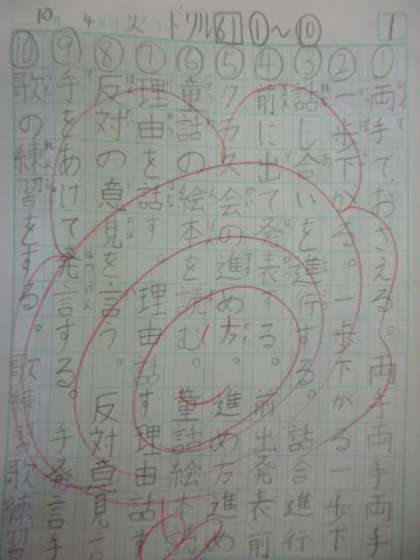 10 4 火 ドリル61①～⑩ 1
①両手でおさえる。両手両手両手
②一歩下がる。一歩下がる一歩下
③話し合いを進行する。話合進行
④前に出て発表する。前出発表前
⑤クラス会の進め方。進め方進め
⑥童話の絵本を読む。童話絵本読
⑦理由を話す。理由話す理由話す
⑧反対の意見を言う。反対意見言
⑨手をあげて発言する。手発言手
⑩歌の練習をする。歌練習歌練習